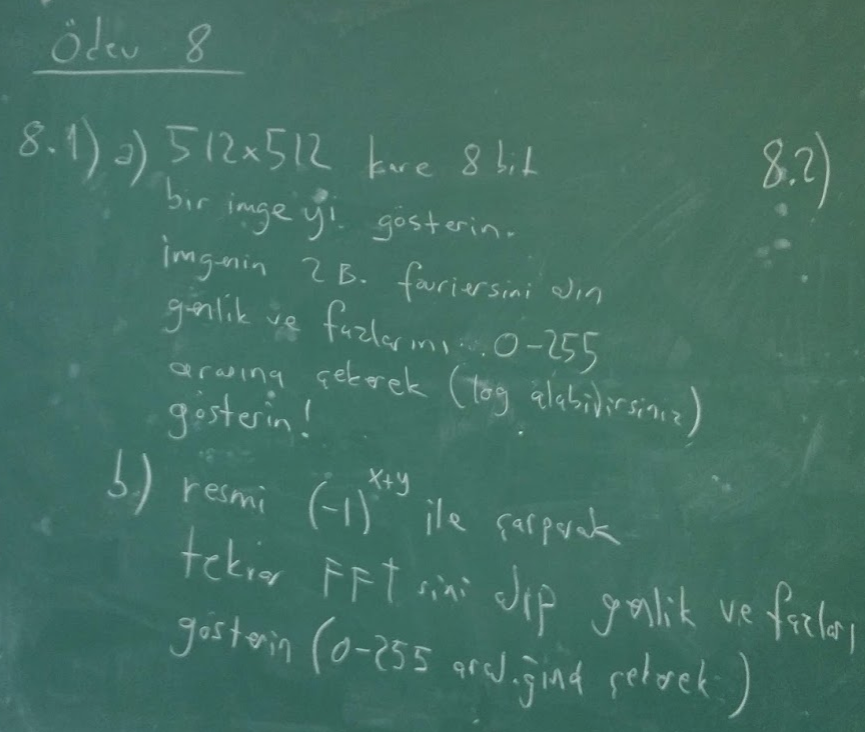 Ödev 8
8.1) a) 512x512 kare 8 bit
bir imgeyi gösterin.
imgenin 2B. fouriersini alın
genlik ve fazlarını...0-255
arasına çekerek (log alabilirsiniz)
gösterin!
b) resmi (-1)^x+y ile çarparak
tekrar FFT sini alıp genlik ve fazları
gösterin (0-255 aralığına çekerek)
8.2)